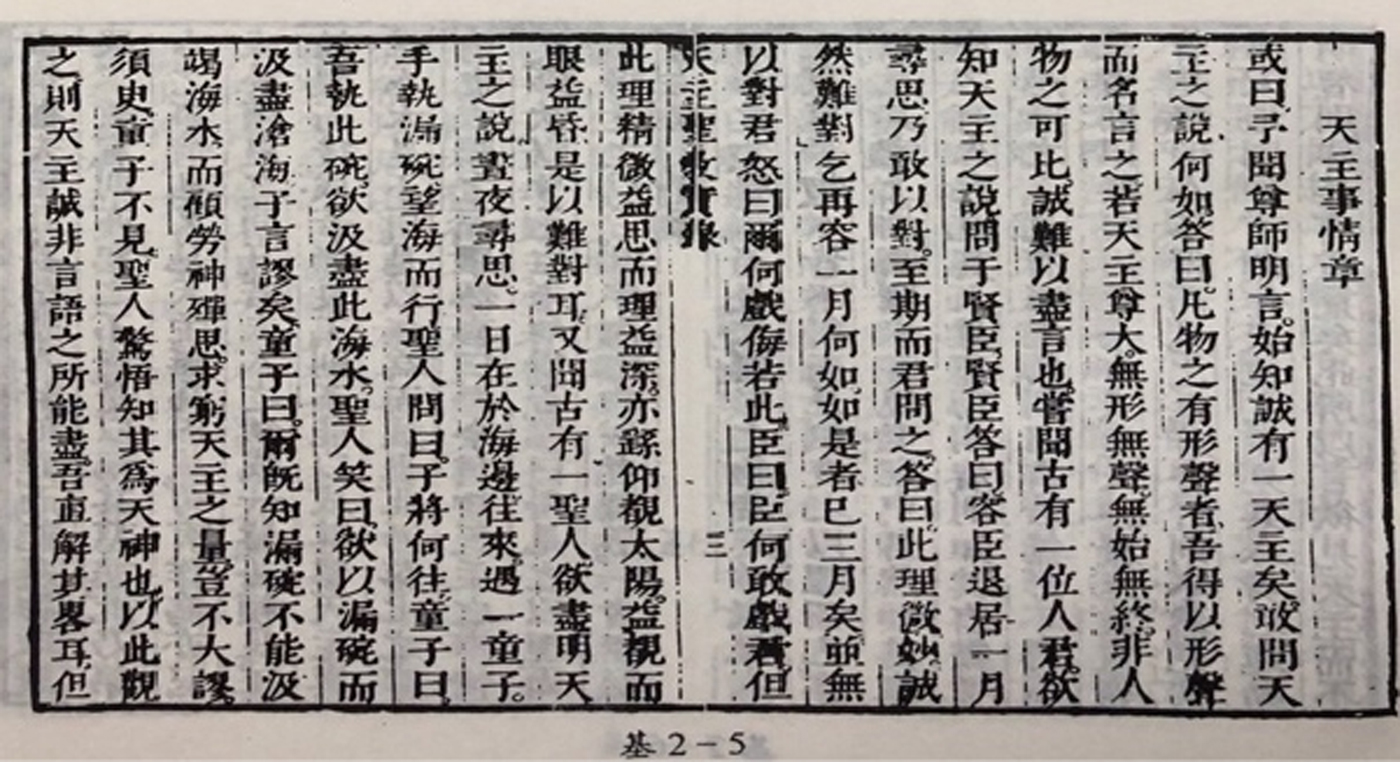 天主事情章
或曰予聞尊師明言。始知誠有一天主矣。敢問天
主之說何如。答曰。凡物之有形聲者。吾得以形聲
而名言之。若天主尊大。無形無聲。無始無終。非人
物之可比。誠難以盡言也。嘗聞古有一位人君。欲
知天主之說問于賢臣。賢臣答曰。容臣退居一月
尋思乃敢以對。至期而君問之。答曰。此理微妙。誠
然難對乞再容一月何如。如是者已三月矣。並無
以對君怒曰爾何戲侮若此。臣曰。臣何敢戲君。但
天主聖教實錄
三
此理精微益思而理益深。亦繇仰觀太陽。益觀而
眼益昏。是以難對耳。又聞古有一聖人。欲盡明天
主之說。晝夜尋思。一日在於海邊往來。遇一童子。
手執漏碗。望海而行。聖人問曰。子將何往。童子曰。
吾執此碗。欲汲盡此海水。聖人笑曰。欲以漏碗而
汲盡滄海。子言謬矣。童子曰。爾既知漏碗不能汲
竭海水。而顧勞神殫思。求窮天主之量。豈不大謬。
須臾。童子不見。聖人驚悟知其為天神也。以此觀
之。則天主誠非言語之所能盡。吾直解其畧耳。但
基2－5